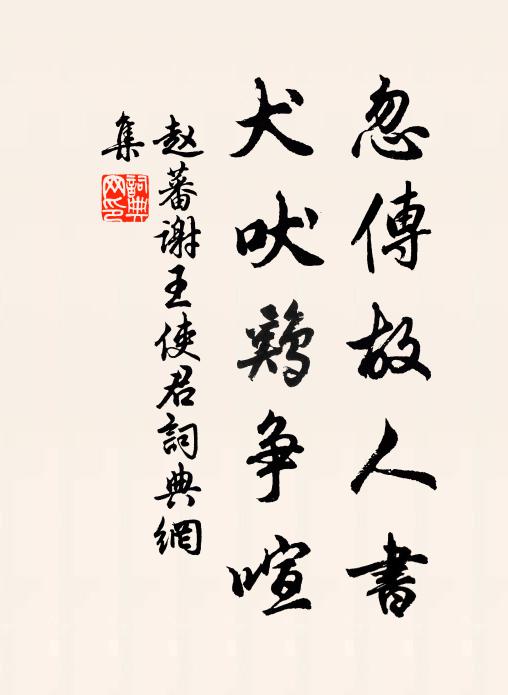 忽傳故人書
犬吠鷄争喧
赵蕃謝王使君詞典網
集
詞典網印